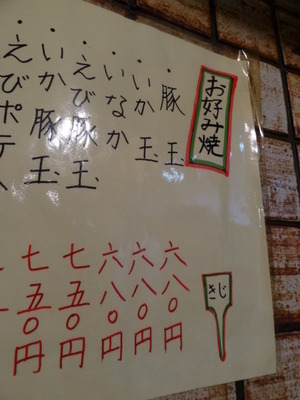 お好み焼
きじ
・豚玉
六八〇円
・いか玉
六八〇円
・いなか
六八〇円
・えび豚玉
七五〇円
・いか豚玉
七五〇円
・えびポテ